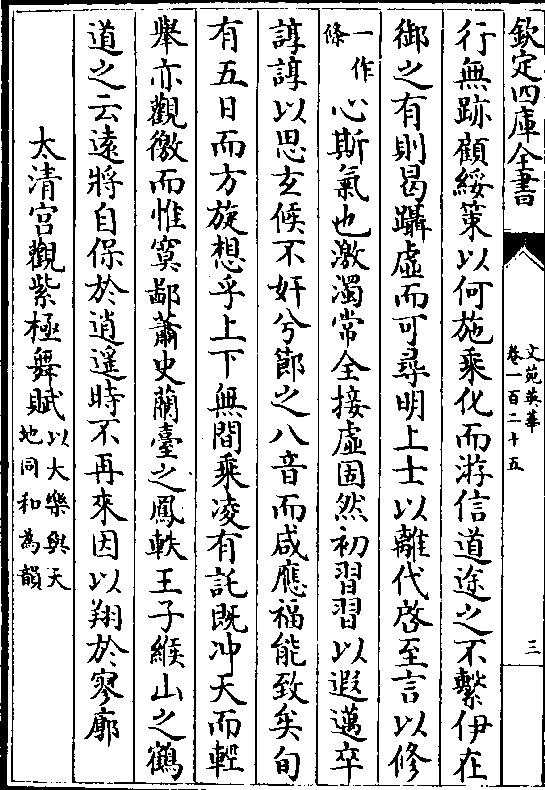 欽定四庫全書
文苑英華
卷一百二十五
三
行無跡顧綏策以何施乘化而游信道途之不繫伊在
御之有則曷躡虛而可尋明上士以離代啓至言以修
一作
條
心斯氣也激濁常全接虛固然初習習以遐邁卒
諄諄以思玄候不奸兮節之八音而咸應福能致矣旬
有五日而方旋想乎上下無間乘凌有託既冲天而輕
舉亦觀徼而惟寞鄙蕭史蘭臺之鳳軼王子緱山之鶴
道之云遠將自保於逍遥時不再來因以翔於寥廓
太清宫觀紫極舞賦
以大樂與天
地同和為韻